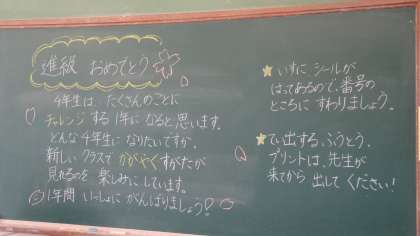 進級 おめでとう
4年生は、たくさんのことに
チャレンジする1年になると思います。
どんな4年生になりたいですか。
新しいクラスでかがやくすがたが
見れるのを楽しみにしています。
1年間 いっしょに がんばりましょう!
★いすに、シールが
はってあるので、番号の
ところに すわりましょう。
★てい出する、ふうとう、
プリントは、先生が
来てから 出して ください!